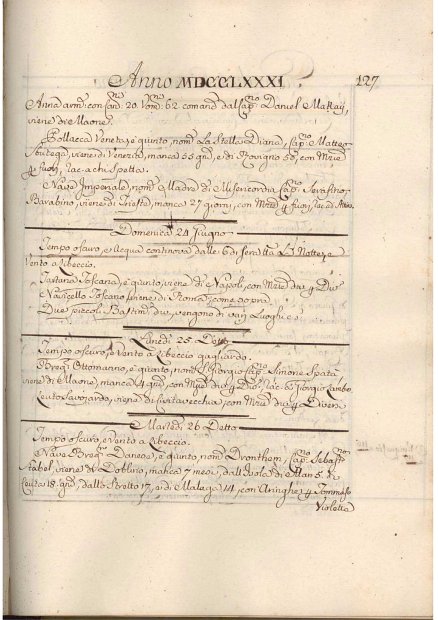 Anno MDCCLXXXI. 127
Anna arm: con Can: 20. Uom: 62. comand: dal Cap:no Daniel Makaij,
viene di Maone.
Pollacca Veneta, è giunto, nom: La Stella Diana, Cap:no Matteo
viene di Venezia, manca 55 gni, e di Rovigno 50, con Mrzie
p fuori, rac: a chi spetta.
Nave Imperiale, nom: Madre di Misericordia Cap:no Serafino
Barabino, viene di Trieste, manca 27 giorni, con Mrzie p fuori, rac:
Domenica 24 Giugno
Tempo oscuro, e Acqua continova dalle 6 di sera tta La Notte, e
Vento a Libeccio.
Tartana Toscana, è giunto, viene di Napoli, con Mrzie dua p Divi
Navicello Toscano, viene di Roma, come sopra.
Due piccoli Bastim: due, vengono di varj Luoghi.
Lunedì 25 Detto
Tempo oscuro, e Vento a Libeccio gagliardo.
Brig: Ottomanno, è giunto, nom: S. Giorgio Cap:no Simone Spata,
viene di Maone, manca gni, con Mrzie dua p Divi, rac: Giorgio
Leuto Savojardo, viene di Civitavecchia, con Mrzie dua p Diversi
Martedì 26 Detto
Tempo oscuro, e Vento a Libeccio.
Nave Brig: Danese, è giunto, nom: Dronthem, Cap:no Sebastno
Stabel, viene di Doblino, manca 7 mesi, dall'Isola di Man 5. di
Ceuta 18. gni, dallo Stretto 17, e di Malaga 14, con Aringhe p Tommaso
Violetta